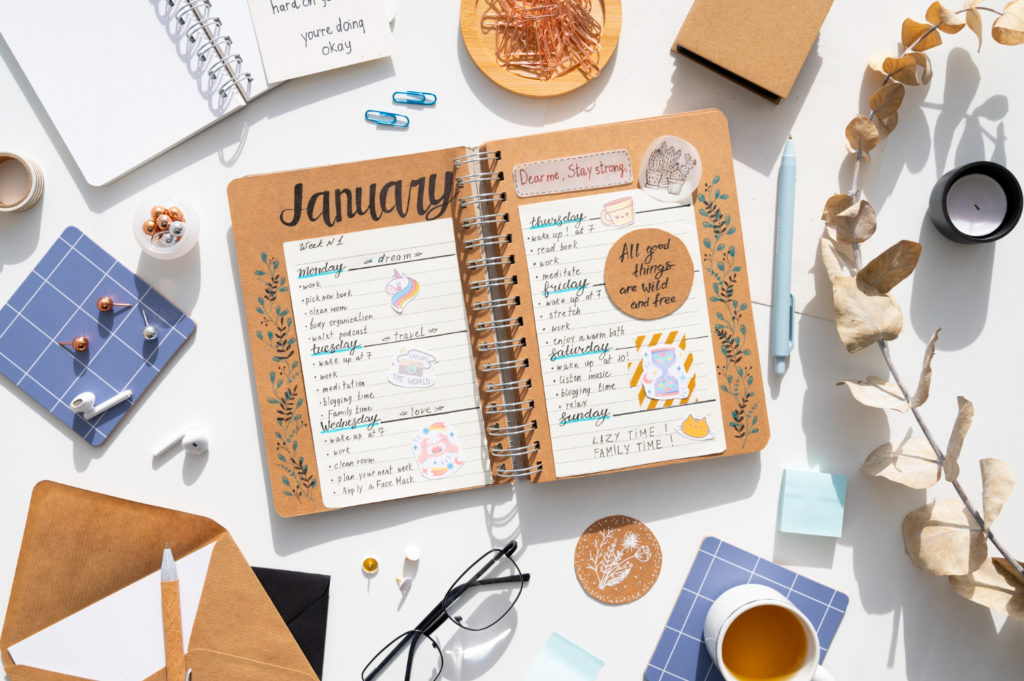 hard on
you're doing
okay
January
Week N1
Monday
« dream »
• work
• pick new book
• clean room
• body organization
podcast
Tuesday
« travel »
• wake up at 7
• work
• meditation
• blogging time
• Family time
EXPLORE
THE WORLD
Wednesday
« love »
• wake up at 7
• work
• clean room
• plan your next week
• Apply a Face Mask
Dear me, Stay strong.
thursday
• wake up! at 7
• read book
• work
• meditate
friday
• wake up at 7
• stretch
• work
• enjoy a warm bath
All good
things
are wild
and free
Saturday
• wake up at 10!
• listen music
• blogging time
• relax
Sunday
LAZY TIME!
FAMILY TIME!